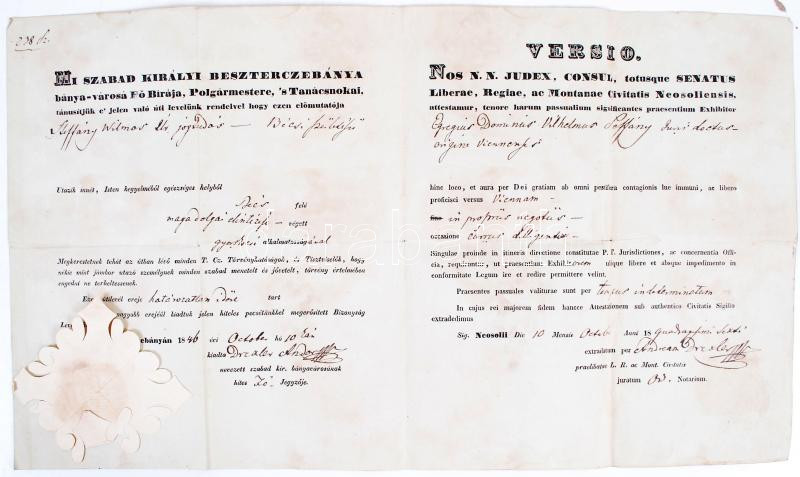 238 sz.
MI SZABAD KIRÁLYI BESZTERCZEBÁNYA
bánya-városa Fő Birája, Polgármestere, 's Tanácsnokai,
tánusitjük e' jelen való úti levelünk rendelvel hogy ezen előmutatója
t. Steffány Wilmos Ur jogtudós — Bécsi születésű
Utazik innét, Isten kegyelméből egészséges helyből
Bécs felé
maga dolgai elintézése végett
gyorskocsi alkalmatosságával
Megkerestetnek tehát az útban lévő minden T. Cz. Törvényhatóságok, és Tisztviselők, hogy
néki mint jámbor utazó személynek minden szabad menetelt és jövetelt, törvény értelmében
engedni ne terheltessenek.
Ezen útilevél ereje határozatlan időre tart
nagyobb erejéül kiadtuk jelen hiteles pecsétünkkel megerősitett Bizonyság
Lev
ebányán 1846 évi October hó 10 kén
kiadta Drexler Andor
nevezett szabad kir. bányavárosának
hites Fő Jegyzője.
VERSIO.
NOS N. N. JUDEX, CONSUL, totusque SENATUS
Liberae, Regiae, ac Montanae Civitatis Neosoliensis,
attestamur, tenore harum passualium significantes praesentium Exhibitor
Egregius Dominus Vilhelmus Steffány Juris doctus
origine Viennensis
hinc loco, et aura per Dei gratiam ab omni pestifera contagionis lue immuni, ac libero
proficisci versus Viennam
fine in propriis negotiis
occasione currus diligentis
Singulae proinde in itineris directione constitutae P. T. Jurisdictiones, ac concernentia Offi-
cia, requiruntur, ut praesentium Exhibitorem ubique libere et absque impedimento in
conformitate Legum ire et redire permittere velint.
Praesentes passales valiturae sunt per tempus indeterminatum
In cujus rei majorem fidem hancce Attestationem sub authentico Civitatis Sigilio
extradedimus
Sig. Neosolii Die 10 Mensis Octobr Anni 18 quadragesimi sexti
extradatum per Andream Drexler
praelibatae L. R. ac Mont. Civitatis
juratum Notarium.